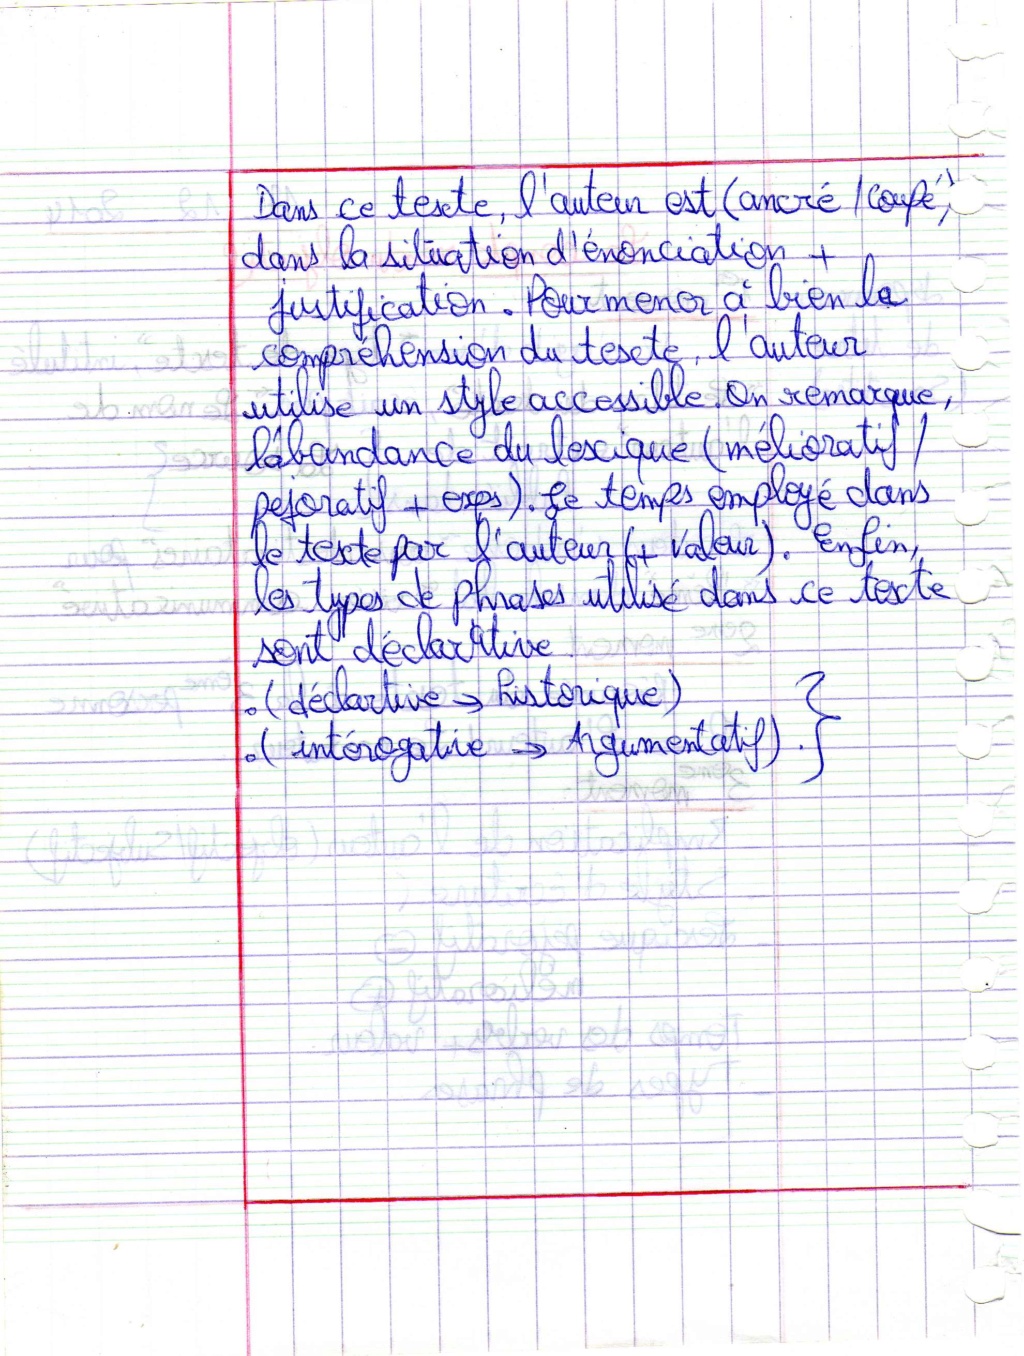 Dans ce texte, l'auteur est (ancré / coupé)
dans la situation d'énonciation +
justification. Pour mener à bien la
compréhension du texte, l'auteur
utilise un style accessible. On remarque,
l'abandance du lexique (mélioratif /
pejoratif + exps). Le temps employé dans
le texte par l'auteur (+ valeur). Enfin,
les types de phrases utilisé dans ce texte
sont déclarative.
.( déclartive → historique)
.( intérogative → Argumentatif).